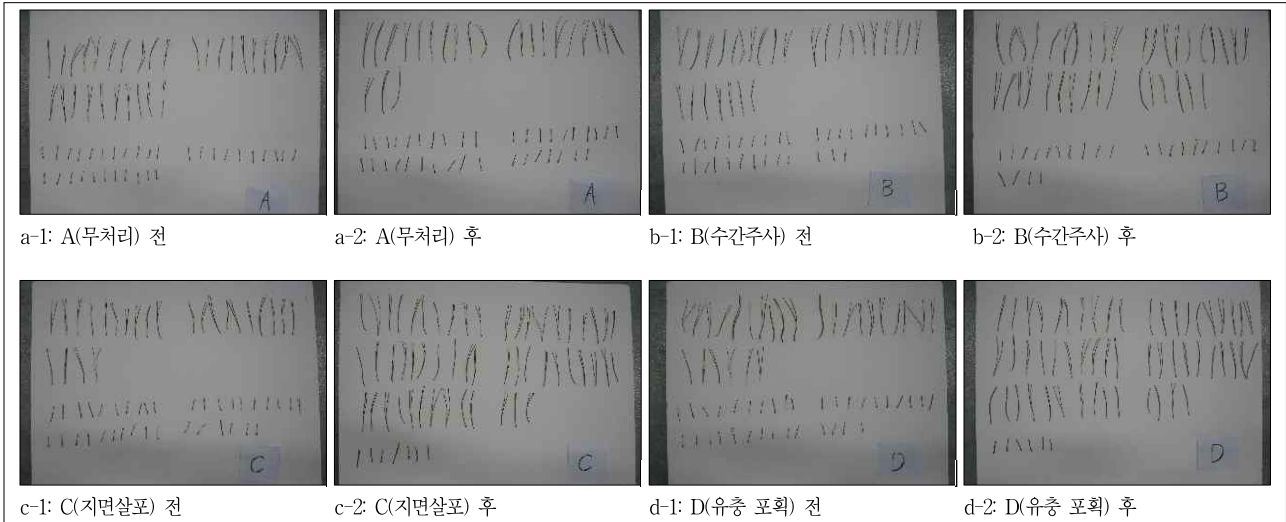 A
A
B
B
a-1: A(무처리) 전
a-2: A(무처리) 후
b-1: B(수간주사) 전
b-2: B(수간주사) 후
C
C
D
D
c-1: C(지면살포) 전
c-2: C(지면살포) 후
d-1: D(유충 포획) 전
d-2: D(유충 포획) 후